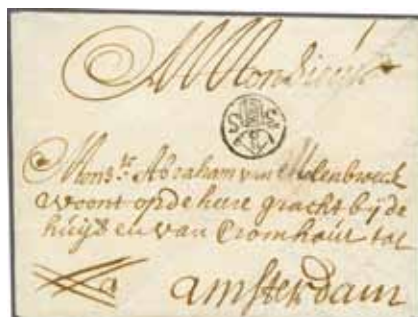 Monsieur
S S
Monsr. Abraham van Molenbroeck
woont op de here gracht bij de
huijs en van Cromhout tot
amsterdam